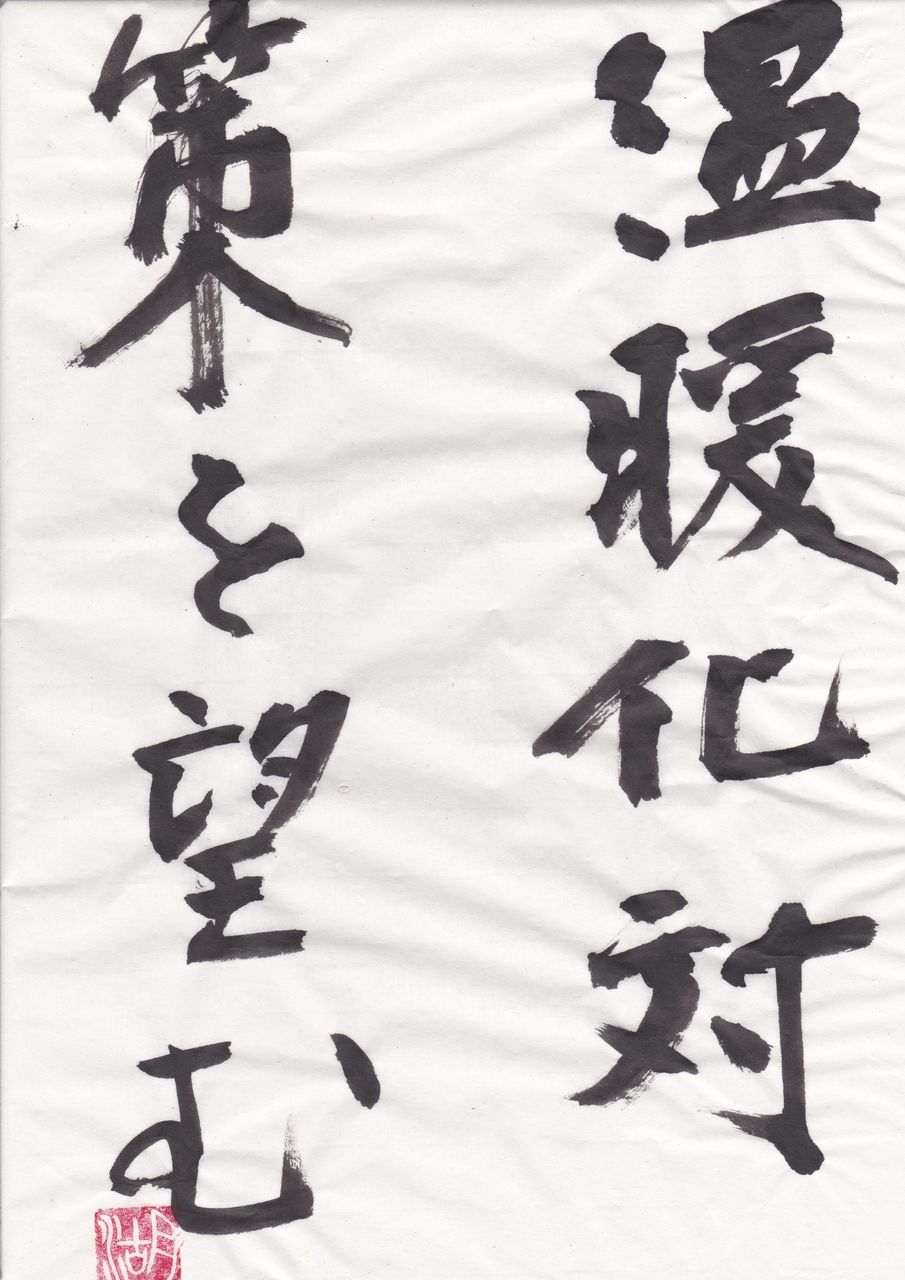 温暖化対
策を望む
湖